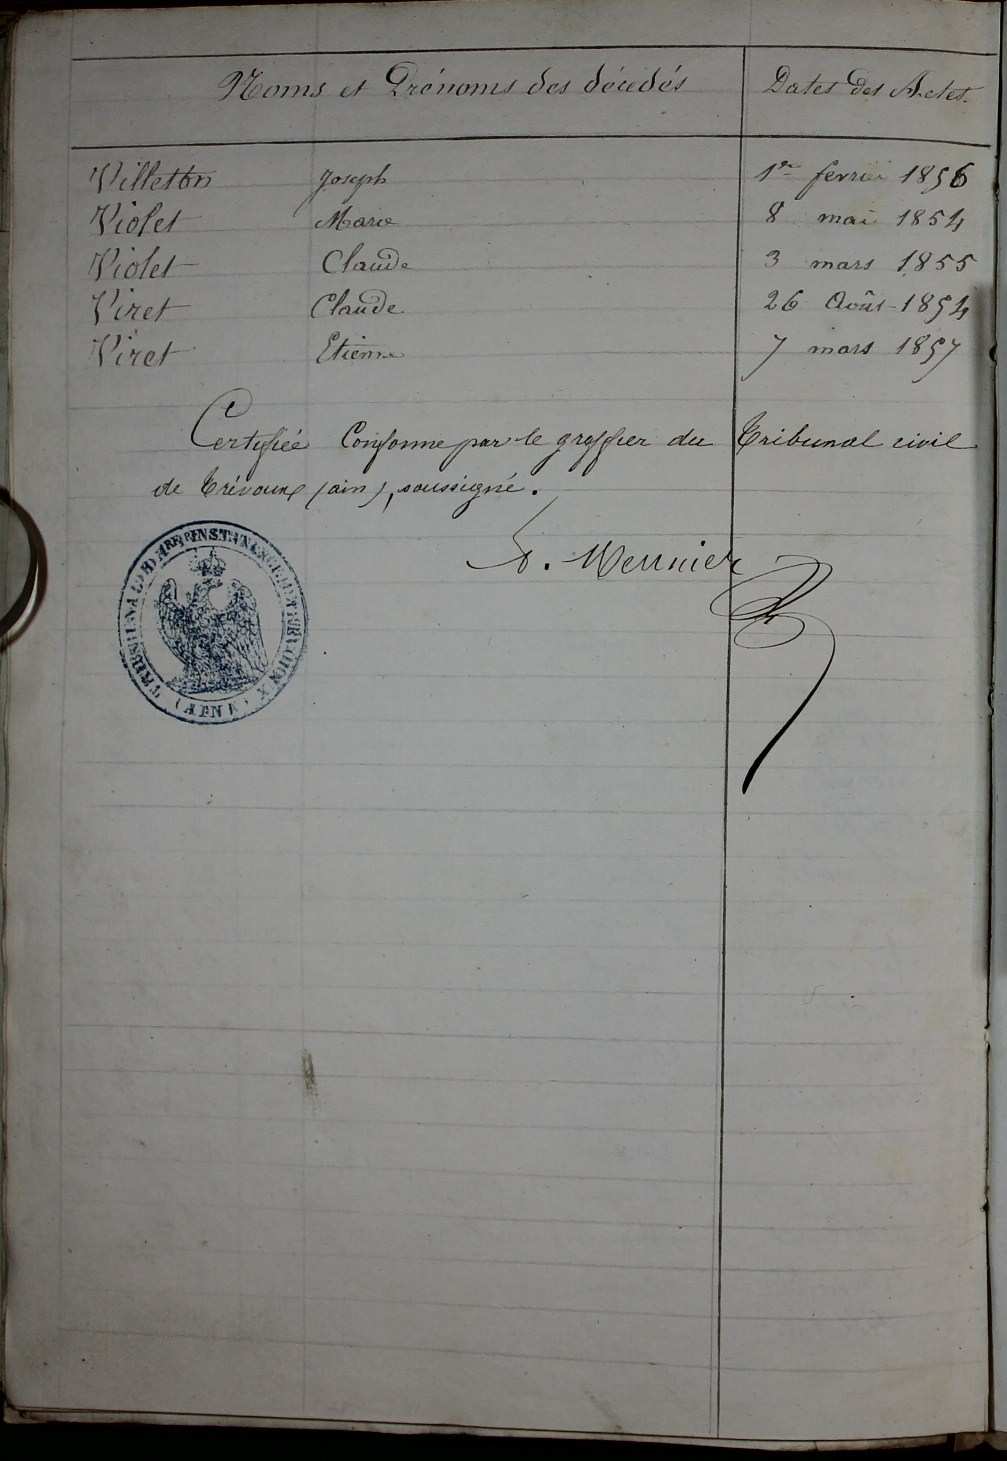 Noms et Prénoms des décédés Dates des Actes.
Villeton Joseph 1er fevrier 1856
Violet Marie 8 mai 1854
Violet Claude 3 mars 1855
Viret Claude 26 Août 1854
Viret Etienne 7 mars 1857
Certifiée Conforme par le greffier du Tribunal civil
de Trévoux (ain), soussigné.
Meunier
TRIBUNAL DE 1ERE INSTANCE DE TREVOUX
(AIN)